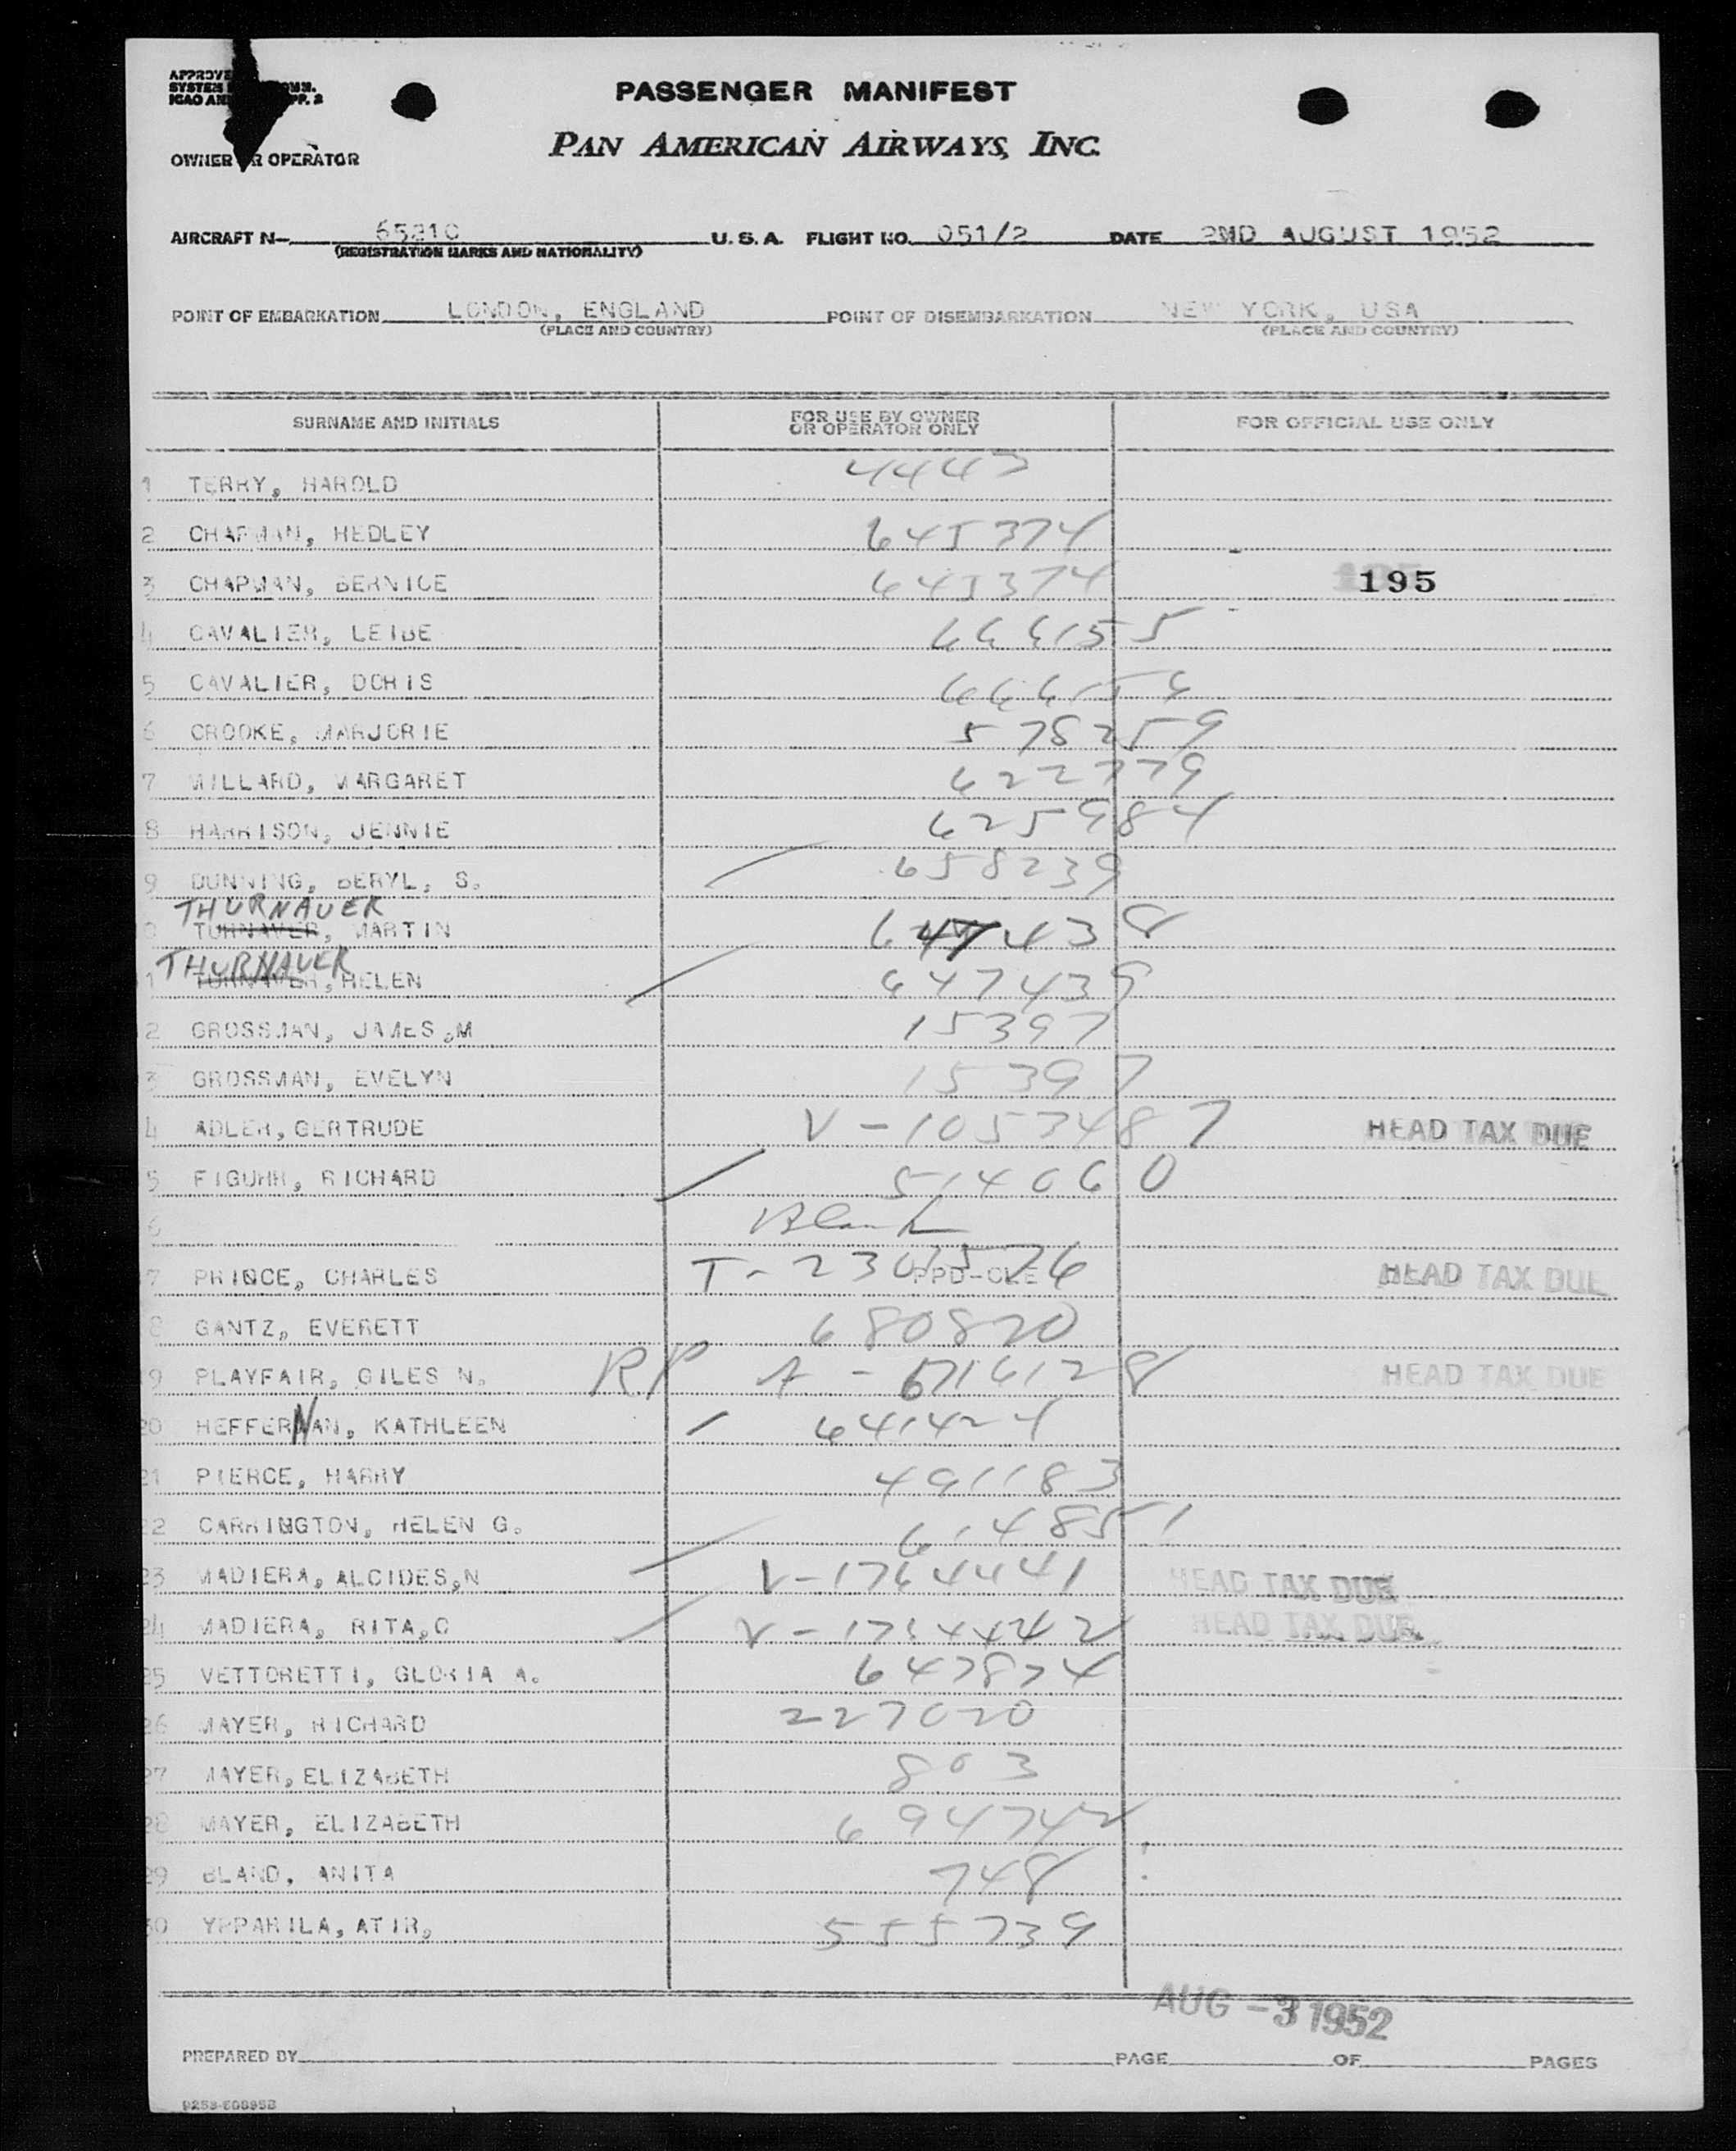 PASSENGER MANIFEST
PAN AMERICAN AIRWAYS, INC.
OWNER OR OPERATOR
AIRCRAFT N- 65210 U. S. A. FLIGHT NO. 051/2 DATE 2ND AUGUST 1952
(REGISTRATION MARKS AND NATIONALITY)
POINT OF EMBARKATION LONDON, ENGLAND POINT OF DISEMBARKATION NEW YORK, USA
(PLACE AND COUNTRY) (PLACE AND COUNTRY)
SURNAME AND INITIALS FOR USE BY OWNER OR OPERATOR ONLY FOR OFFICIAL USE ONLY
1 TERRY, HAROLD 4443
2 CHAPMAN, HEDLEY 645374
3 CHAPMAN, BERNICE 645374 195
4 CAVALIER, LEIBE 666155
5 CAVALIER, DORIS 666156
6 CROOKE, MARJORIE 578259
7 MILLARD, MARGARET 622779
8 HARRISON, JENNIE 625984
9 DUNNING, BERYL, S. 658239
THURNAUER
0 TURNAVER, MARTIN 647438
THURNAUER
1 TURNAVER, HELEN 647439
2 GROSSMAN, JAMES,M 15397
3 GROSSMAN, EVELYN 15397
4 ADLER, GERTRUDE V-1053487 HEAD TAX DUE
5 FIGUHR, RICHARD 514060
6 Blank
7 PRINCE, CHARLES T-2301576 PPD-CLE HEAD TAX DUE
8 GANTZ, EVERETT 680820
9 PLAYFAIR, GILES N. RP A-6716128 HEAD TAX DUE
20 HEFFERNAN, KATHLEEN 641424
21 PIERCE, HARRY 491183
22 CARRINGTON, HELEN G. 614851
23 MADIERA, ALCIDES,N V-1764441 HEAD TAX DUE
24 MADIERA, RITA,C HEAD TAX DUE
25 VETTORETTI, GLORIA A. 647874
26 MAYER, RICHARD 227020
27 MAYER, ELIZABETH 803
28 MAYER, ELIZABETH 694742
29 BLAND, ANITA 748
30 YPPARILA, ATIR, 555739
AUG -3 1952
PREPARED BY PAGE OF PAGES